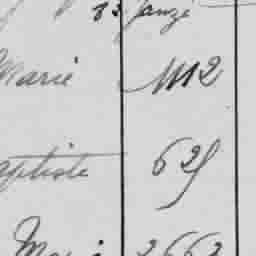 83 Janzé
Marie 1112
aptiste 625
Marie 2662